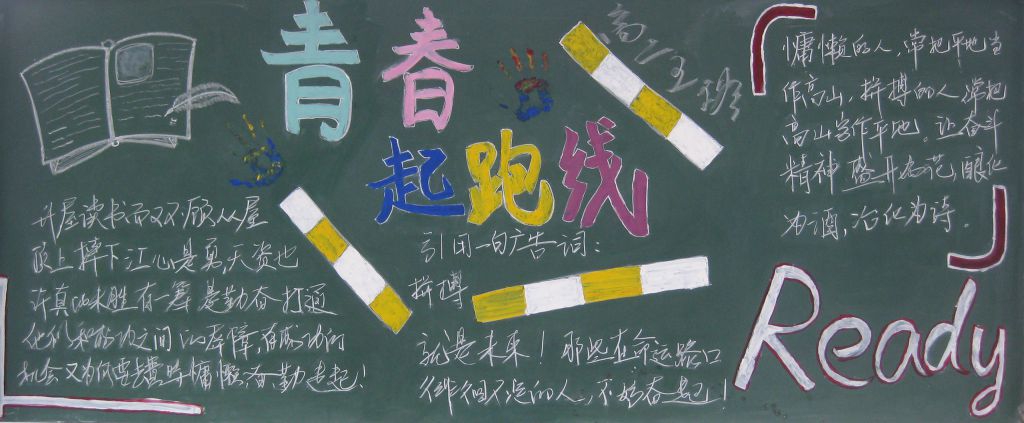 青春
起跑线
高二班
慵懒的人,常把平地当
作高山,拼搏的人常把
高山当作平地。让奋斗
精神盛开为花,酿化
为酒,冶化为诗。
升屋读书而又不顾从屋
跌上摔下江心是勇天资也
许真的水胜有一筹是勤奋打通
他们和成功之间的屏障,有成功的
机会又为何要
慵懒
勤走起!
引用一句广告词:
拼搏
就是未来!那些在命运路口
徘徊不定的人,不妨奋起!
Ready